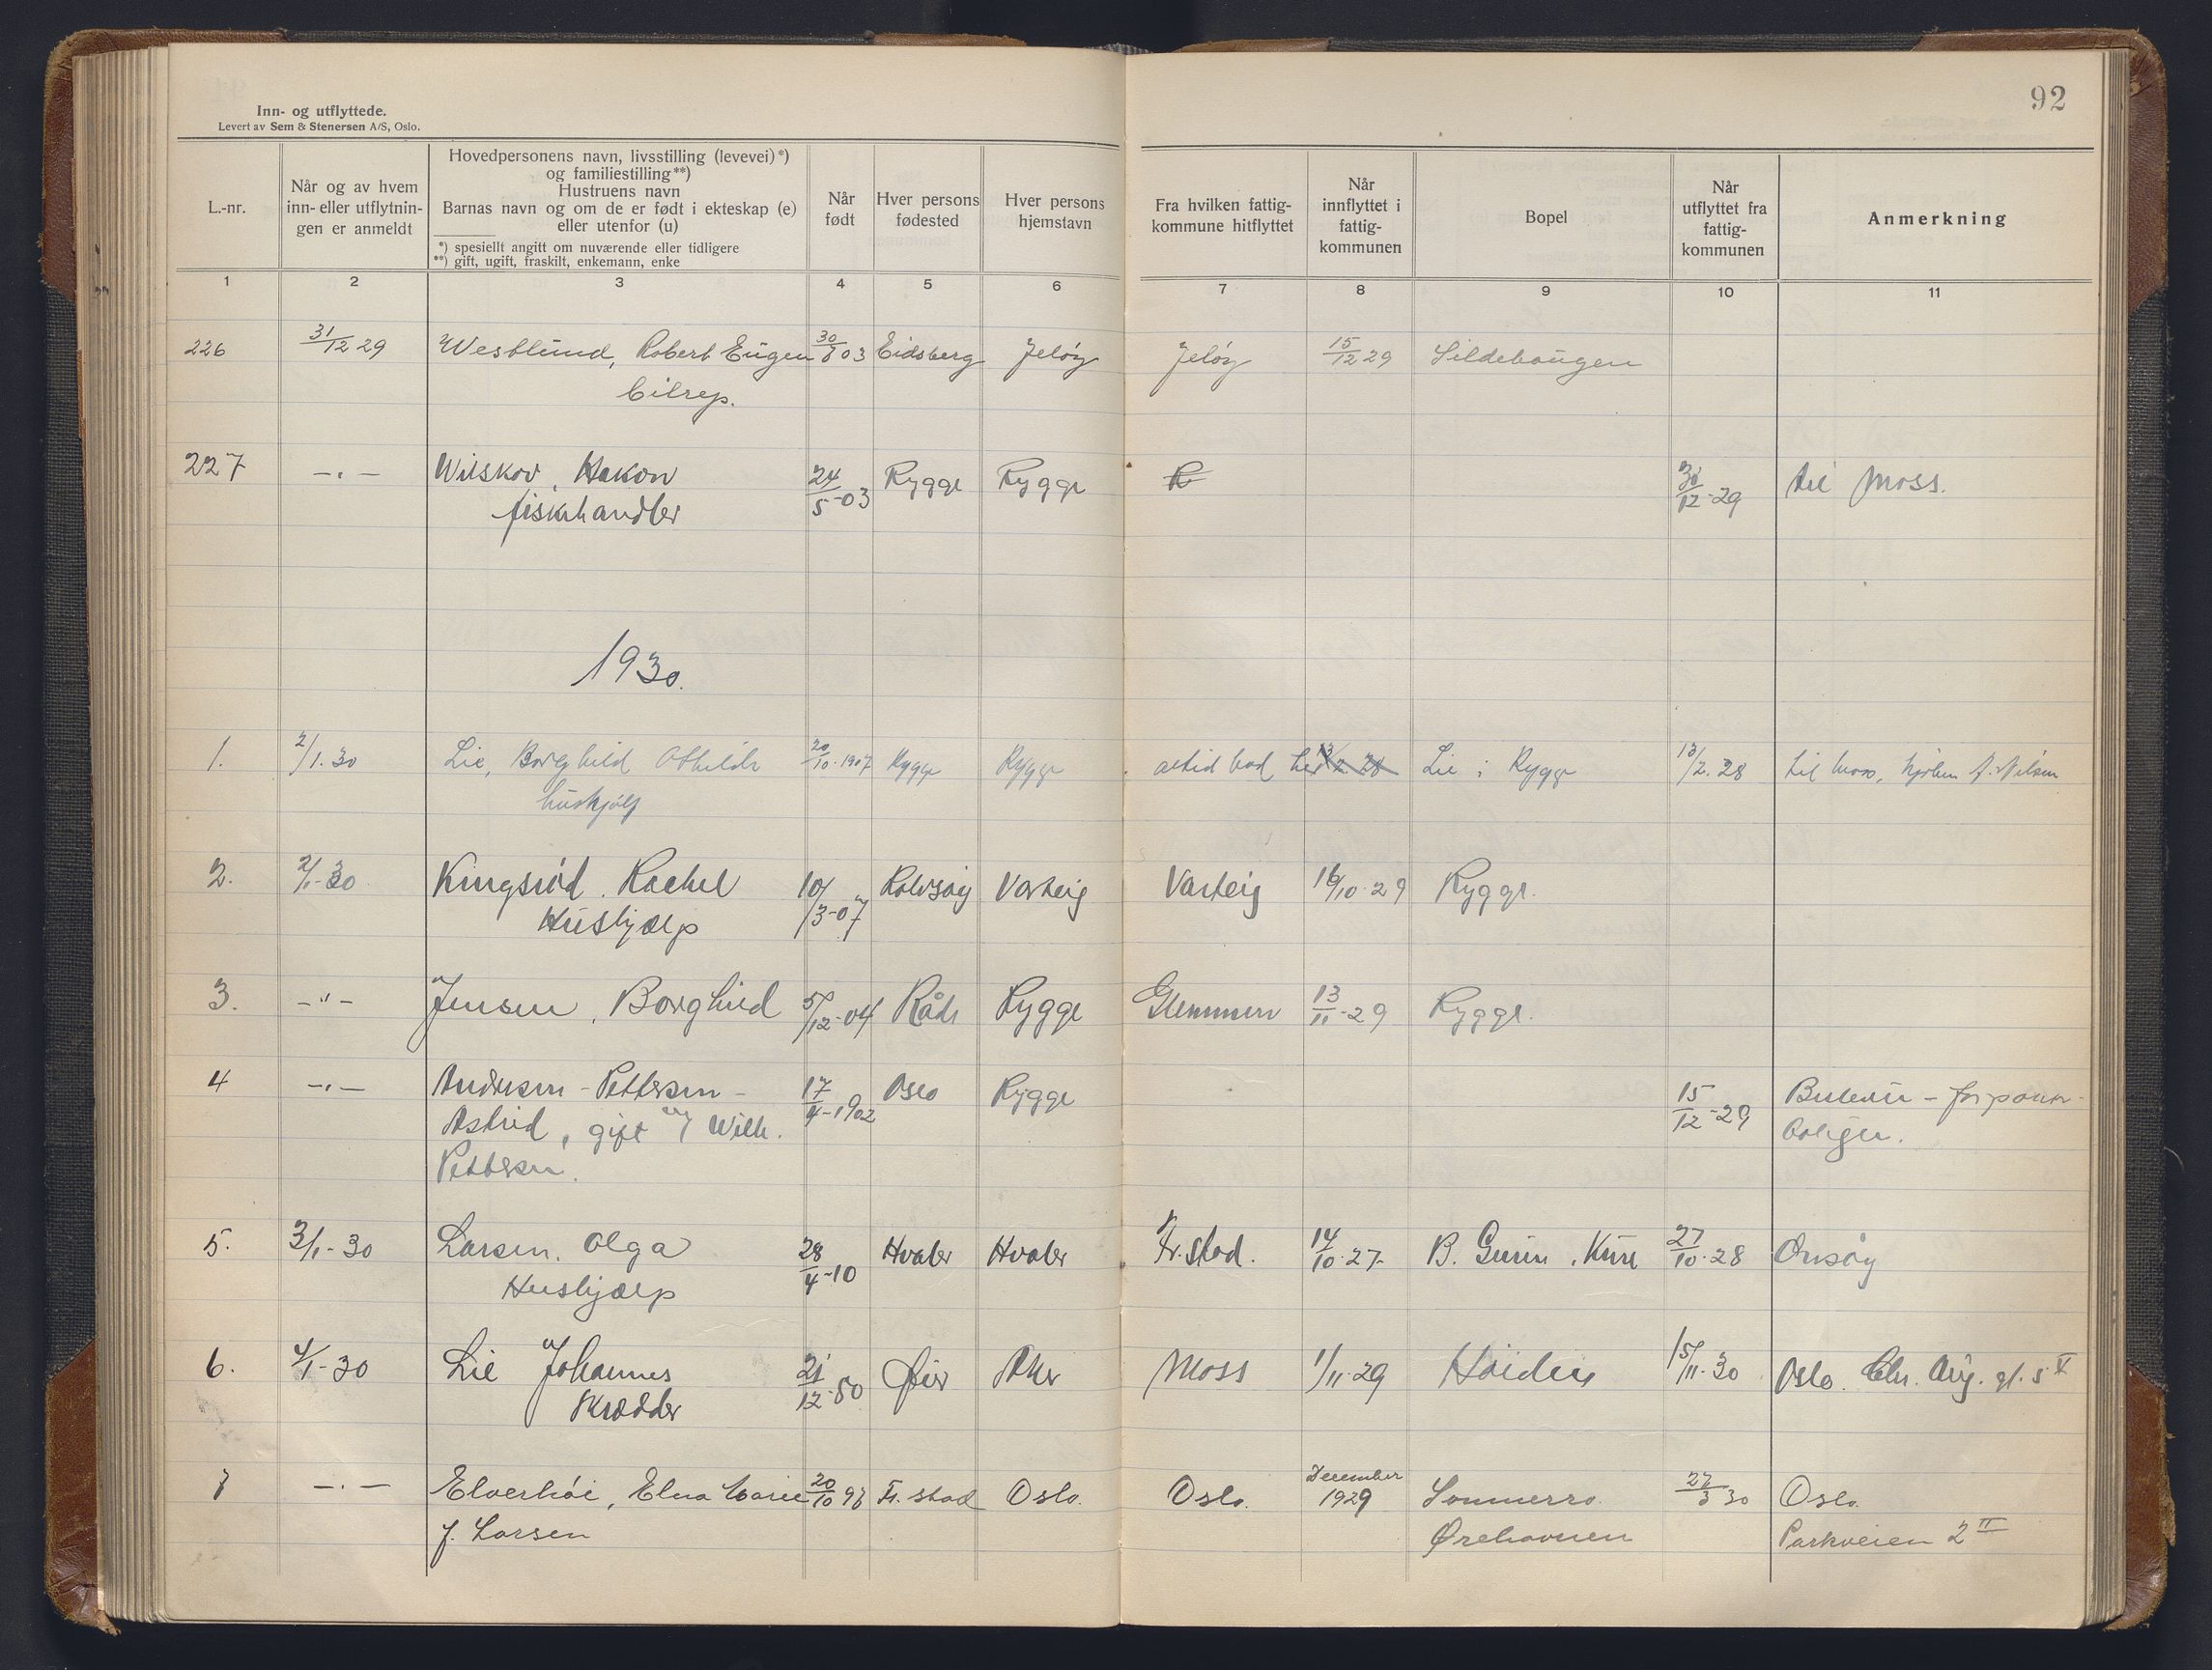 92
Inn- og utflyttede.
Levert av Sem & Stenersen A/S, Oslo.
L.-nr.
Når og av hvem
inn- eller utflytnin-
gen er anmeldt
Hovedpersonens navn, livsstilling (levevei)*)
og familiestilling**)
Hustruens navn
Barnas navn og om de er født i ekteskap (e)
eller utenfor (u)
*) spesiellt angitt om nuværende eller tidligere
**) gift, ugift, fraskilt, enkemann, enke
Når
født
Hver persons
fødested
Hver persons
hjemstavn
Fra hvilken fattig-
kommune hitflyttet
Når
innflyttet i
fattig-
kommunen
Bopel
Når
utflyttet fra
fattig-
kommunen
Anmerkning
1 2 3 4 5 6 7 8 9 10 11
226 31/12 29 Westlund, Robert Eugen 30/8 03 Eidsberg Jeløy Jeløy 15/12 29 Sildebaugen
bilrep.
227 -"- Wilskov, Hakon 24/5-03 Rygge Rygge R 30/12-29 til Moss.
fiskehandler
1930.
1. 2/1.30 Lie, Borghild Othilde 20/10.1907 Rygge Rygge altid bod her 13/2 28 Lie i Rygge 13/2.28 til Moss,
hushjælp
2. 2/1-30 Kingsrød. Rachel 10/3-07 Rolvsøy Varteig Varteig 16/10.29 Rygge.
Hushjælp
3. -"- Jensen, Borghild 5/12-04 Råde Rygge Glemmen 13/11-29 Rygge.
4 -"- Andersen - Pettersen - 17/4-1902 Oslo Rygge 15/12-29
Astrid, gift m/ Wilh.
Pettersen.
5. 3/1-30 Larsen, Olga 28/4-10 Hvaler Hvaler Fr.stad. 14/10.27- B. Kure 27/10.28 Onsøy
Hushjælp
6. 4/1-30 Lie Johannes 21/12-80 Øier Aker Moss 1/11.29 Høiden 15/11.30 Oslo. Chr. Aug. gt. 5 V
Skrædder
7 -"- Elverhøi, Elna Marie 20/10 97 Fr. stad Oslo. Oslo. December 1929 Sommerro. 27/3 30 Oslo.
f. Larsen Ørehavnen Parkveien 2 II